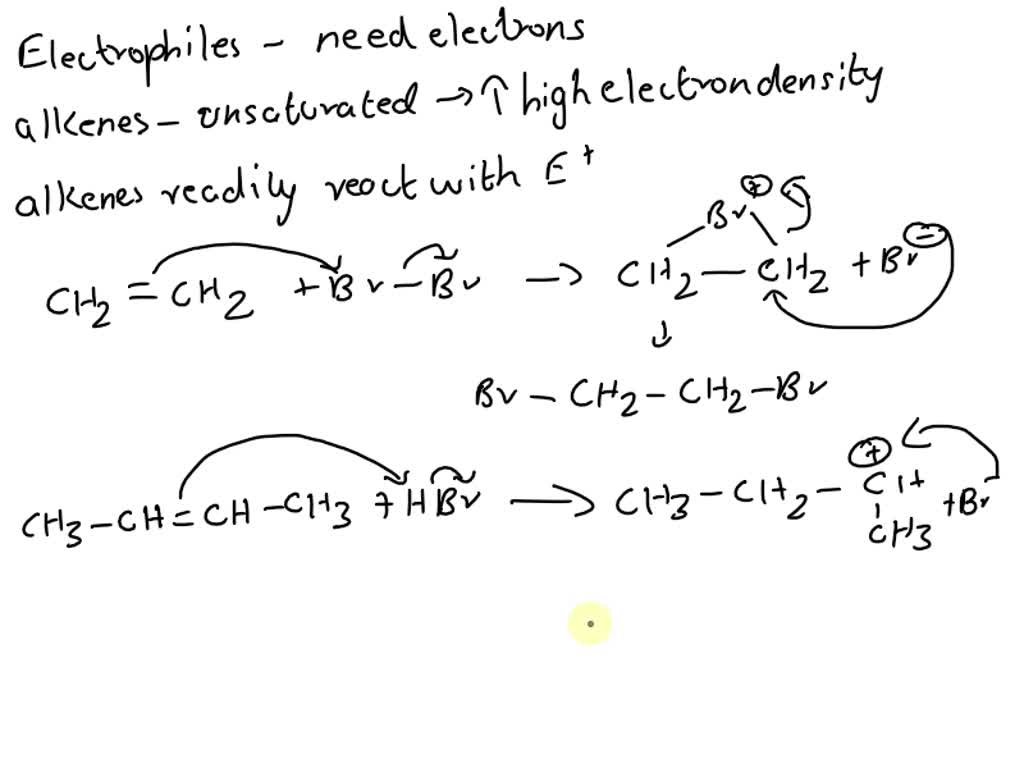 Electrophiles - need electrons
alkenes - unsaturated → ↑ high electron density
alkenes readily react with E⁺
CH2 = CH2 + Br - Br → CH2 - CH2 + Br ⊖
Br ⊕
↓
Br - CH2 - CH2 - Br
CH3 - CH = CH - CH3 + H Br → CH3 - CH2 - CH + Br
⊕
CH3